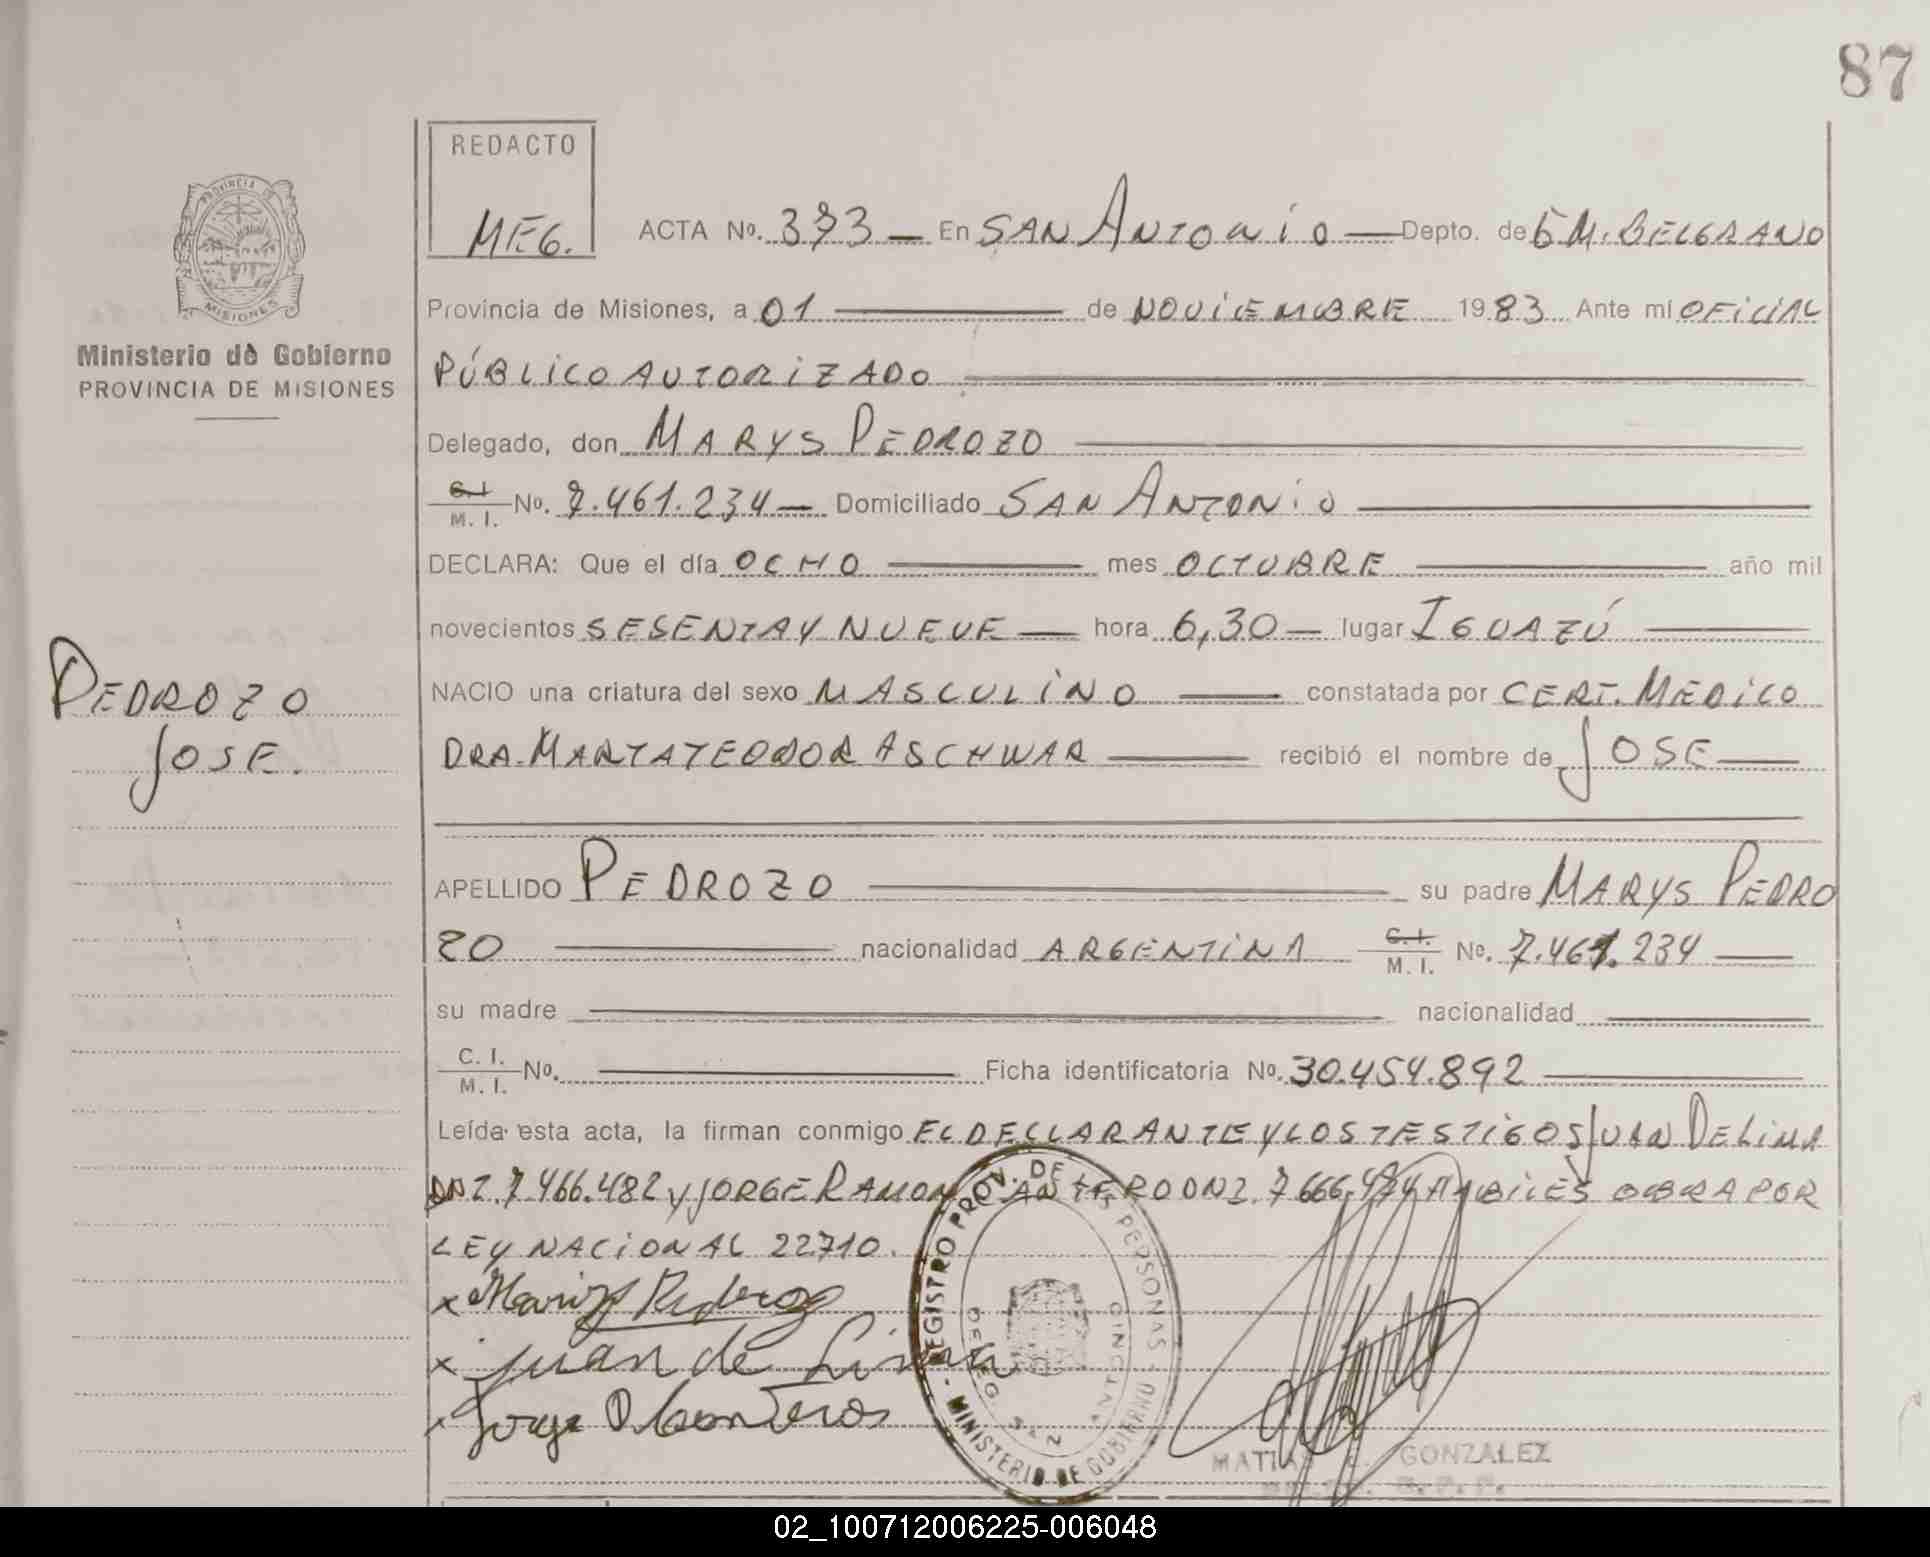 87
REDACTO
MEG.
ACTA Nº. 373 — En SAN ANTONIO — Depto. de G M. BELGRANO
PROVINCIA DE
MISIONES
Ministerio de Gobierno
PROVINCIA DE MISIONES
Provincia de Misiones, a 01 — de NOVIEMBRE 1983 Ante mi OFICIAL
PÚBLICO AUTORIZADO
Delegado, don MARYS PEDROZO
C. I. / M. I. No. 7.461.234 — Domiciliado SAN ANTONIO
DECLARA: Que el día OCHO — mes OCTUBRE — año mil
novecientos SESENTA Y NUEVE — hora 6,30 — lugar IGUAZÚ
PEDROZO
JOSE.
NACIO una criatura del sexo MASCULINO — constatada por CERT. MEDICO
DRA. MARTA TEODOR ASCHWAR — recibió el nombre de JOSE —
APELLIDO PEDROZO — su padre MARYS PEDRO
ZO — nacionalidad ARGENTINA C. I. / M. I. Nº. 7.461.234 —
su madre — nacionalidad —
C. I. / M. I. Nº. — Ficha identificatoria Nº. 30.454.892 —
Leída esta acta, la firman conmigo EL DECLARANTE Y LOS TESTIGOS JUAN DE LIMA
DNI. 7.466.482 y JORGE RAMON DNI. 7666. HABILES OBRA POR
LEY NACIONAL 22710.
x Marys Pedrozo
x juan de Lima
x Jorge
REGISTRO PROV. DE LAS PERSONAS - MINISTERIO DE GOBIERNO -
DELEG. SAN ANTONIO
MATIAS GONZALEZ
02_100712006225-006048